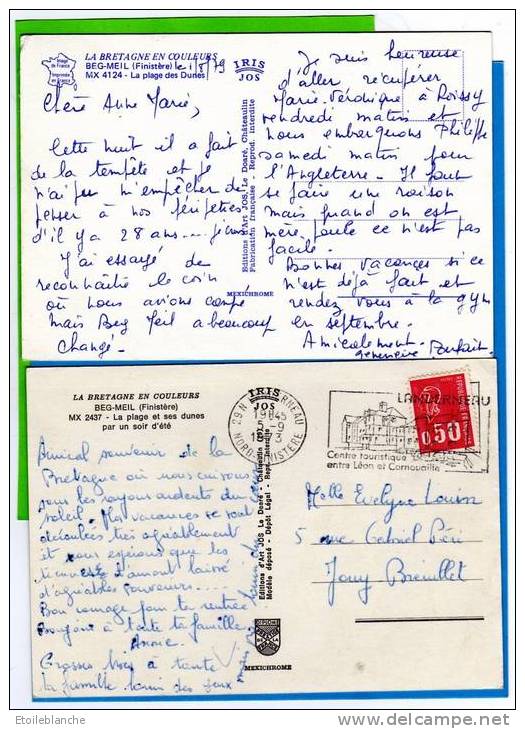 LA BRETAGNE EN COULEURS
BEG-MEIL (Finistère) le 1/8/79
MX 4124 - La plage des Dunes
Image de France
Imprimée en France
IRIS
JOS
Chère Anne Marie,
Cette nuit il a fait
de la tempête et je
n'ai pu m'empêcher de
penser à nos péripéties
d'il y a 28 ans...
J'ai essayé de
reconnaître le coin
où nous avions campé
mais Beg Meil a beaucoup
changé.
Editions d'Art JOS Le Doaré, Châteaulin
Fabrication française - Reprod. interdite
MEXICHROME
Je suis heureuse
d'aller récupérer
Marie-Véronique à Roissy
vendredi matin et
nous embarquons Philippe
samedi matin pour
l'Angleterre - Il faut
se faire une raison
mais quand on est
mère poule ce n'est pas
facile.
Bonnes vacances si ce
n'est déjà fait et
rendez vous à la gym
en septembre.
Amicalement.
Geneviève
LA BRETAGNE EN COULEURS
BEG-MEIL (Finistère)
MX 2437 - La plage et ses dunes
par un soir d'été
IRIS
JOS
Amical souvenir de la
Bretagne où nous cuisons
sous les rayons ardents du
soleil. Mes vacances se sont
déroulées très agréablement
et nous espérons que les
t'auront laissé
d'agréables souvenirs...
Bon courage pour la rentrée
Bonjour à toute ta famille.
Annie
Grosses bises à toute
la famille
Editions d'Art JOS Le Doaré - Châteaulin
Modèle déposé - Dépôt Légal - Repr. interdite
MEXICHROME
29 N LANDERNEAU
19H45
5-9
NORD-FINISTÈRE
LANDERNEAU
Centre touristique
entre Léon et Cornouaille
0,50
Melle Evelyne
5 rue Gabriel Péri
Jouy Breuillet
Etoileblanche
www.delcampe.net